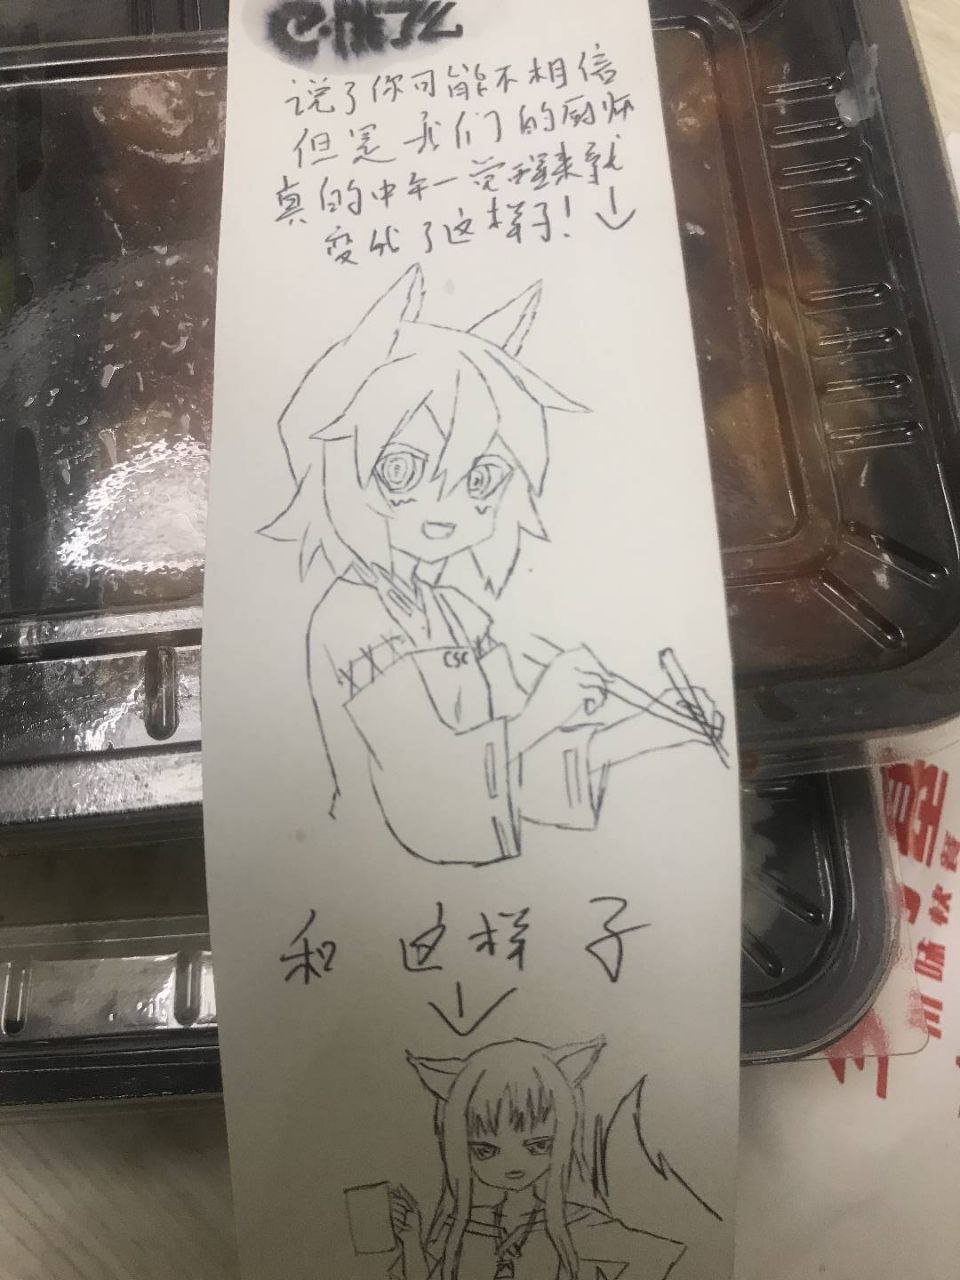 说了你可能不相信
但是我们的厨师
真的中午一觉醒来就
变成了这样子！
CSC
和这样子
川味快餐